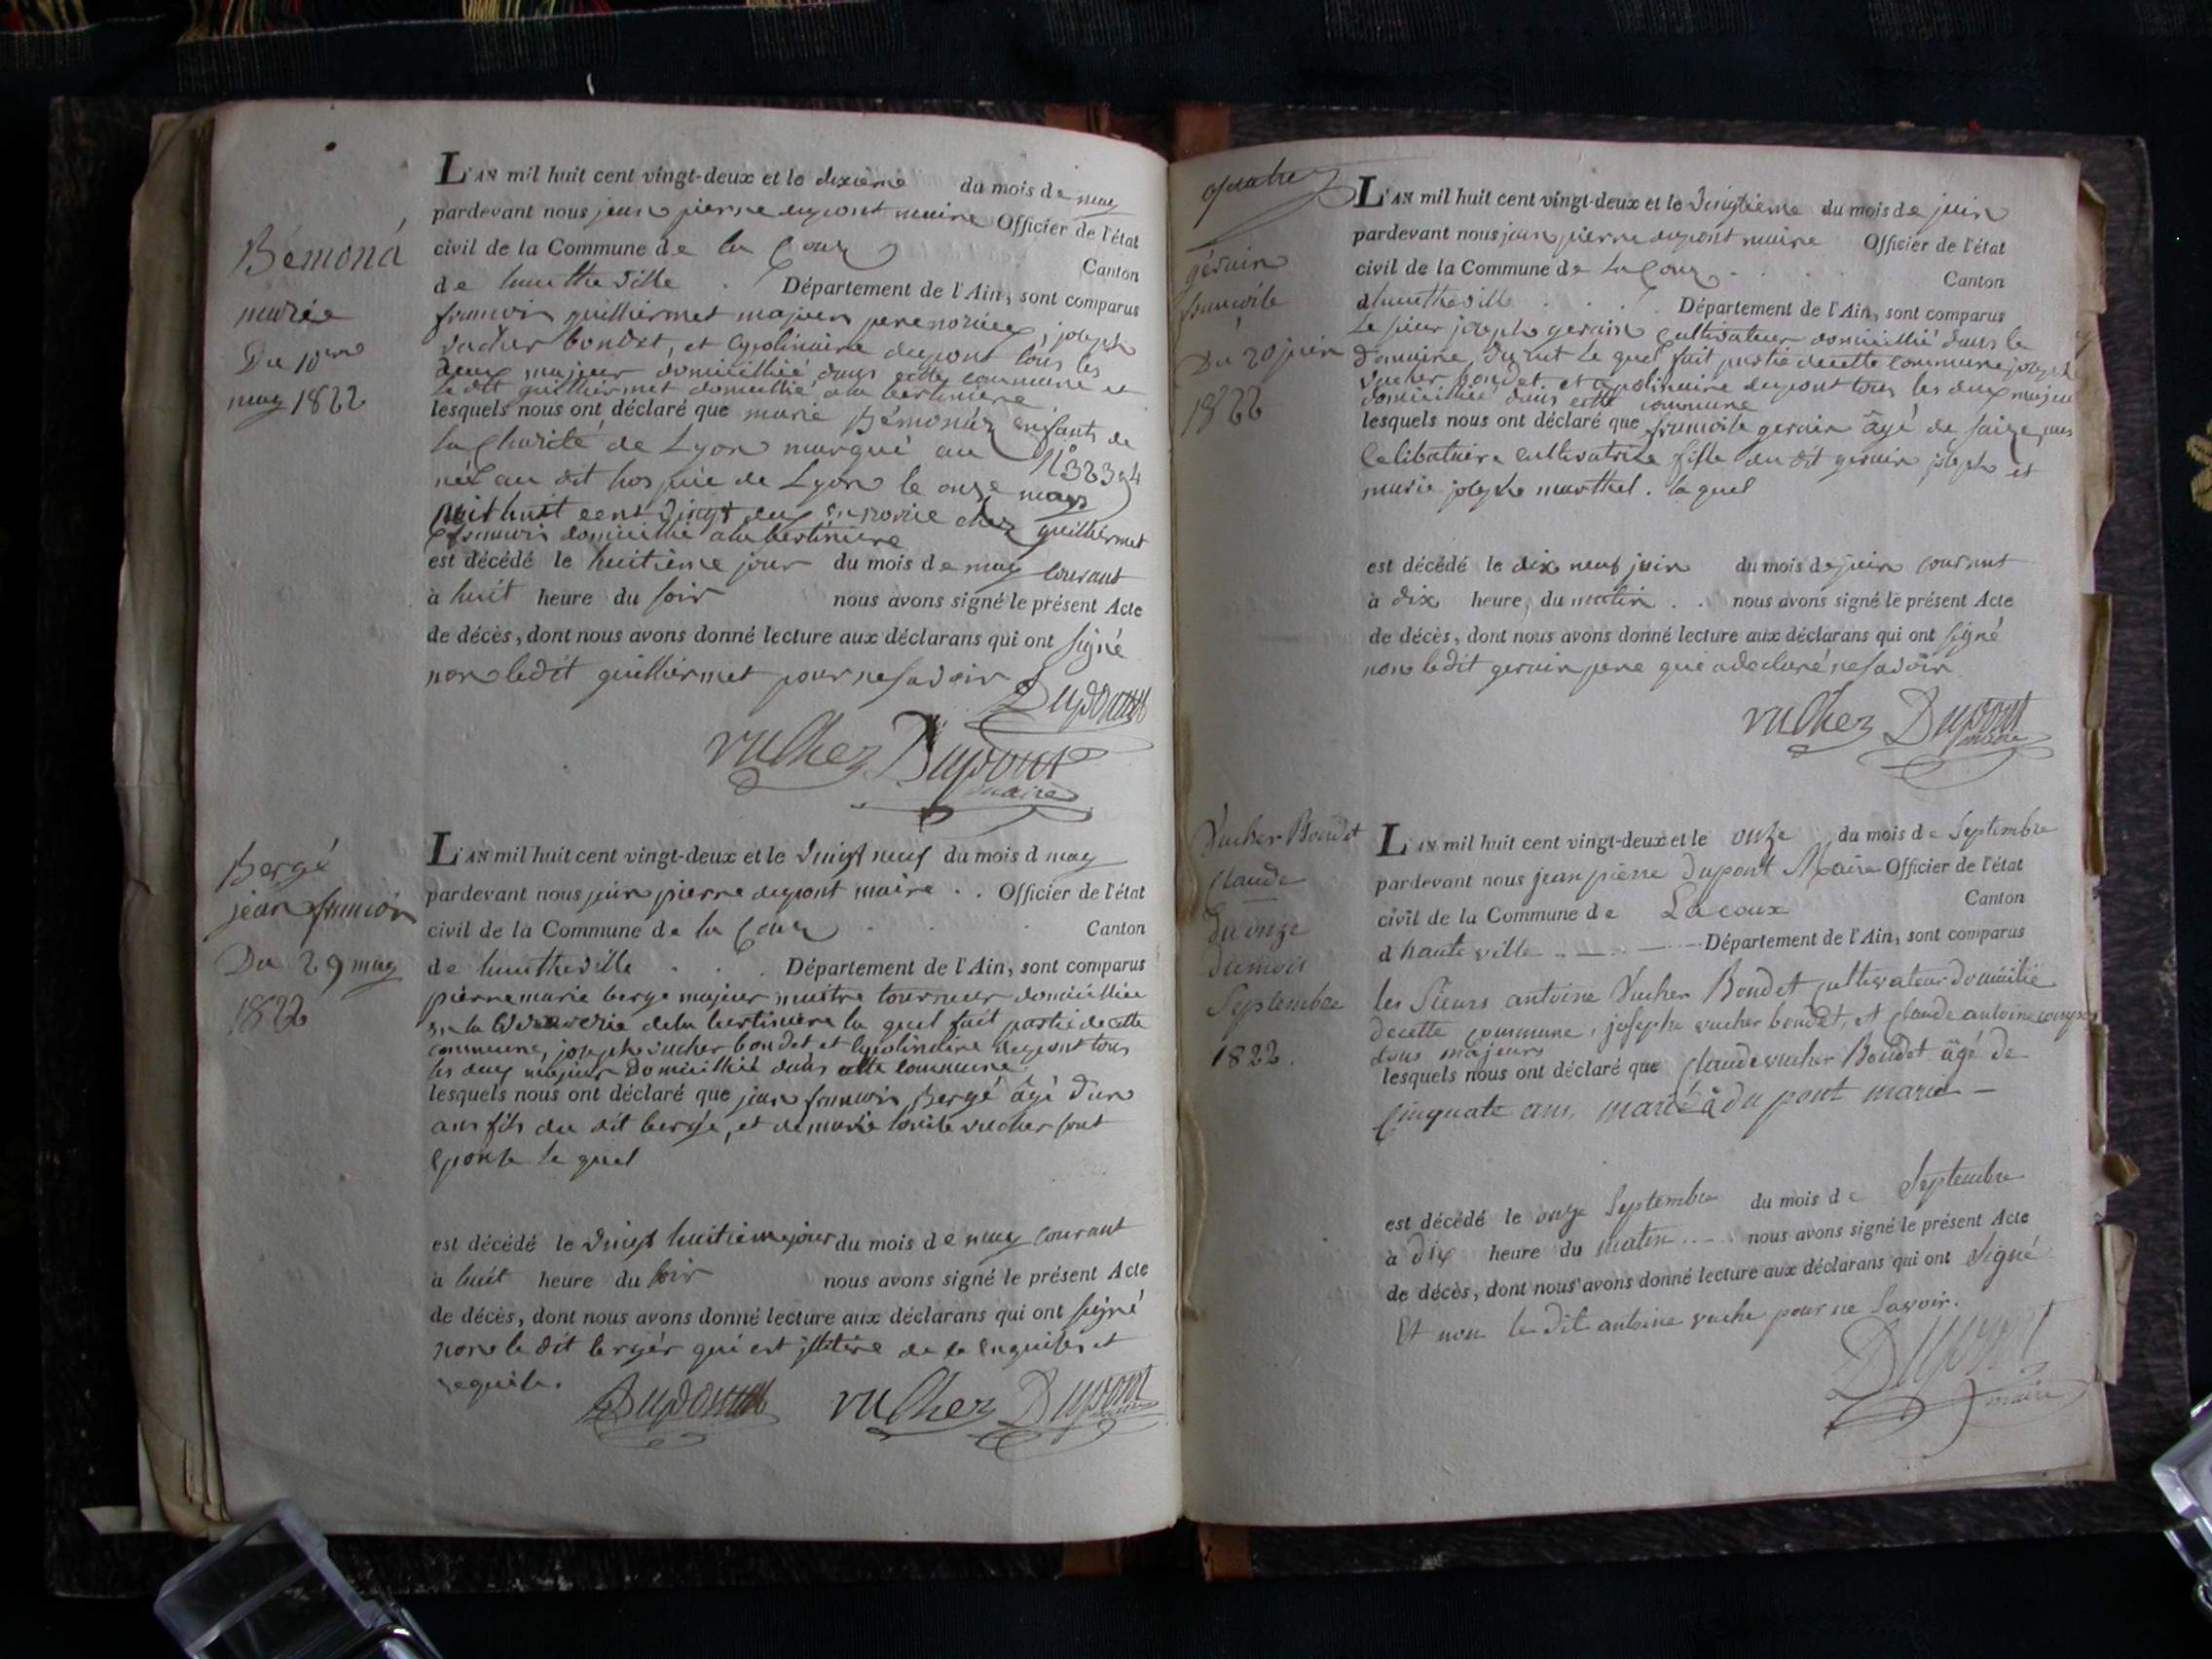 Bémond
marie
Du 10eme
may 1822
L'AN mil huit cent vingt-deux et le dixieme du mois de may
pardevant nous jean pierre dupont maire Officier de l'état
civil de la Commune de la Coux
Canton
de hautheville . Département de l'Ain, sont comparus
francois guilliermet majeur pere noricier, joseph
vucher bondet, et apolinaire dupont tous les
deux majeur domicilliée dans cette commune et
le dit guilliermet domicillié a la bertiniere
lesquels nous ont déclaré que marie Bémond enfants de
la Charité de Lyon marqué au N° 32394
née au dit hospice de Lyon le onze mars
mil huit cent vingt deux en norice chez guilliermet
francois domicillié a la bertiniere
est décédé le huitième jour du mois de may courant
à huit heure du soir nous avons signé le présent Acte
de décès, dont nous avons donné lecture aux déclarans qui ont signé
non ledit guilliermet pour ne savoir
Dupont
vucher Dupont
maire
Bergé
jean francois
Du 29 may
1822
L'AN mil huit cent vingt-deux et le vingt neuf du mois d may
pardevant nous jean pierre dupont maire . . Officier de l'état
civil de la Commune de la Coux . . Canton
de hautheville . . . Département de l'Ain, sont comparus
pierre marie berge majeur maitre tourneur domicilliée
en la verrerie de la bertiniere la quel fait partie de cette
commune, joseph vucher bondet et apolinaire dupont tous
les deux majeur Domicillié dans cette commune
lesquels nous ont déclaré que jean francois Bergé âgé d'un
ans fils du dit bergé, et de marie vucher sont
epouse le quel
est décédé le vingt huitieme jour du mois de may courant
à huit heure du soir nous avons signé le présent Acte
de décès, dont nous avons donné lecture aux déclarans qui ont signé
non le dit bergér qui est de ce enquis et
requile.
Dupont vucher Dupont
quatre
gérain
francoise
Du 20 juin
1822
L'AN mil huit cent vingt-deux et le vingtieme du mois de juin
pardevant nous jean pierre dupont maire Officier de l'état
civil de la Commune de la Coux . . .
Canton
dhautheville . . . Département de l'Ain, sont comparus
Le sieur joseph gerain cultivateur domicillié dans le
Domaine, le quel fait partie de cette commune joseph
vucher bondet et apolinaire dupont tous les deux majeur
domicillié dans cette commune
lesquels nous ont déclaré que francoise gerain âgé de saize ans
Celibataire cultivatrice fille du dit gerain joseph et
marie josephe marthel. la quel
est décédé le dix neuf juin du mois de juin courant
à dix heure, du matin . . nous avons signé le présent Acte
de décès, dont nous avons donné lecture aux déclarans qui ont signé
non ledit gerain pere que a declaré ne savoir
vucher Dupont
maire
Vucher Bondet
Claude
du onze
du mois
Septembre
1822.
L'AN mil huit cent vingt-deux et le onze du mois de Septembre
pardevant nous jean pierre Dupont Maire Officier de l'état
civil de la Commune de Lacoux Canton
d hauteville Département de l'Ain, sont comparus
les Sieurs antoine Vucher Bondet Cultivateur domicilié
de cette commune, joseph vucher bondet, et Claude antoine
tous majeurs
lesquels nous ont déclaré que Claude vucher Bondet âgé de
Cinquate ans, marié à du pont marie —
est décédé le onze Septembre du mois de Septembre
à dix heure du matin nous avons signé le présent Acte
de décès, dont nous avons donné lecture aux déclarans qui ont Signé
Et non le dit antoine vuche pour ne Savoir.
Dupont
maire